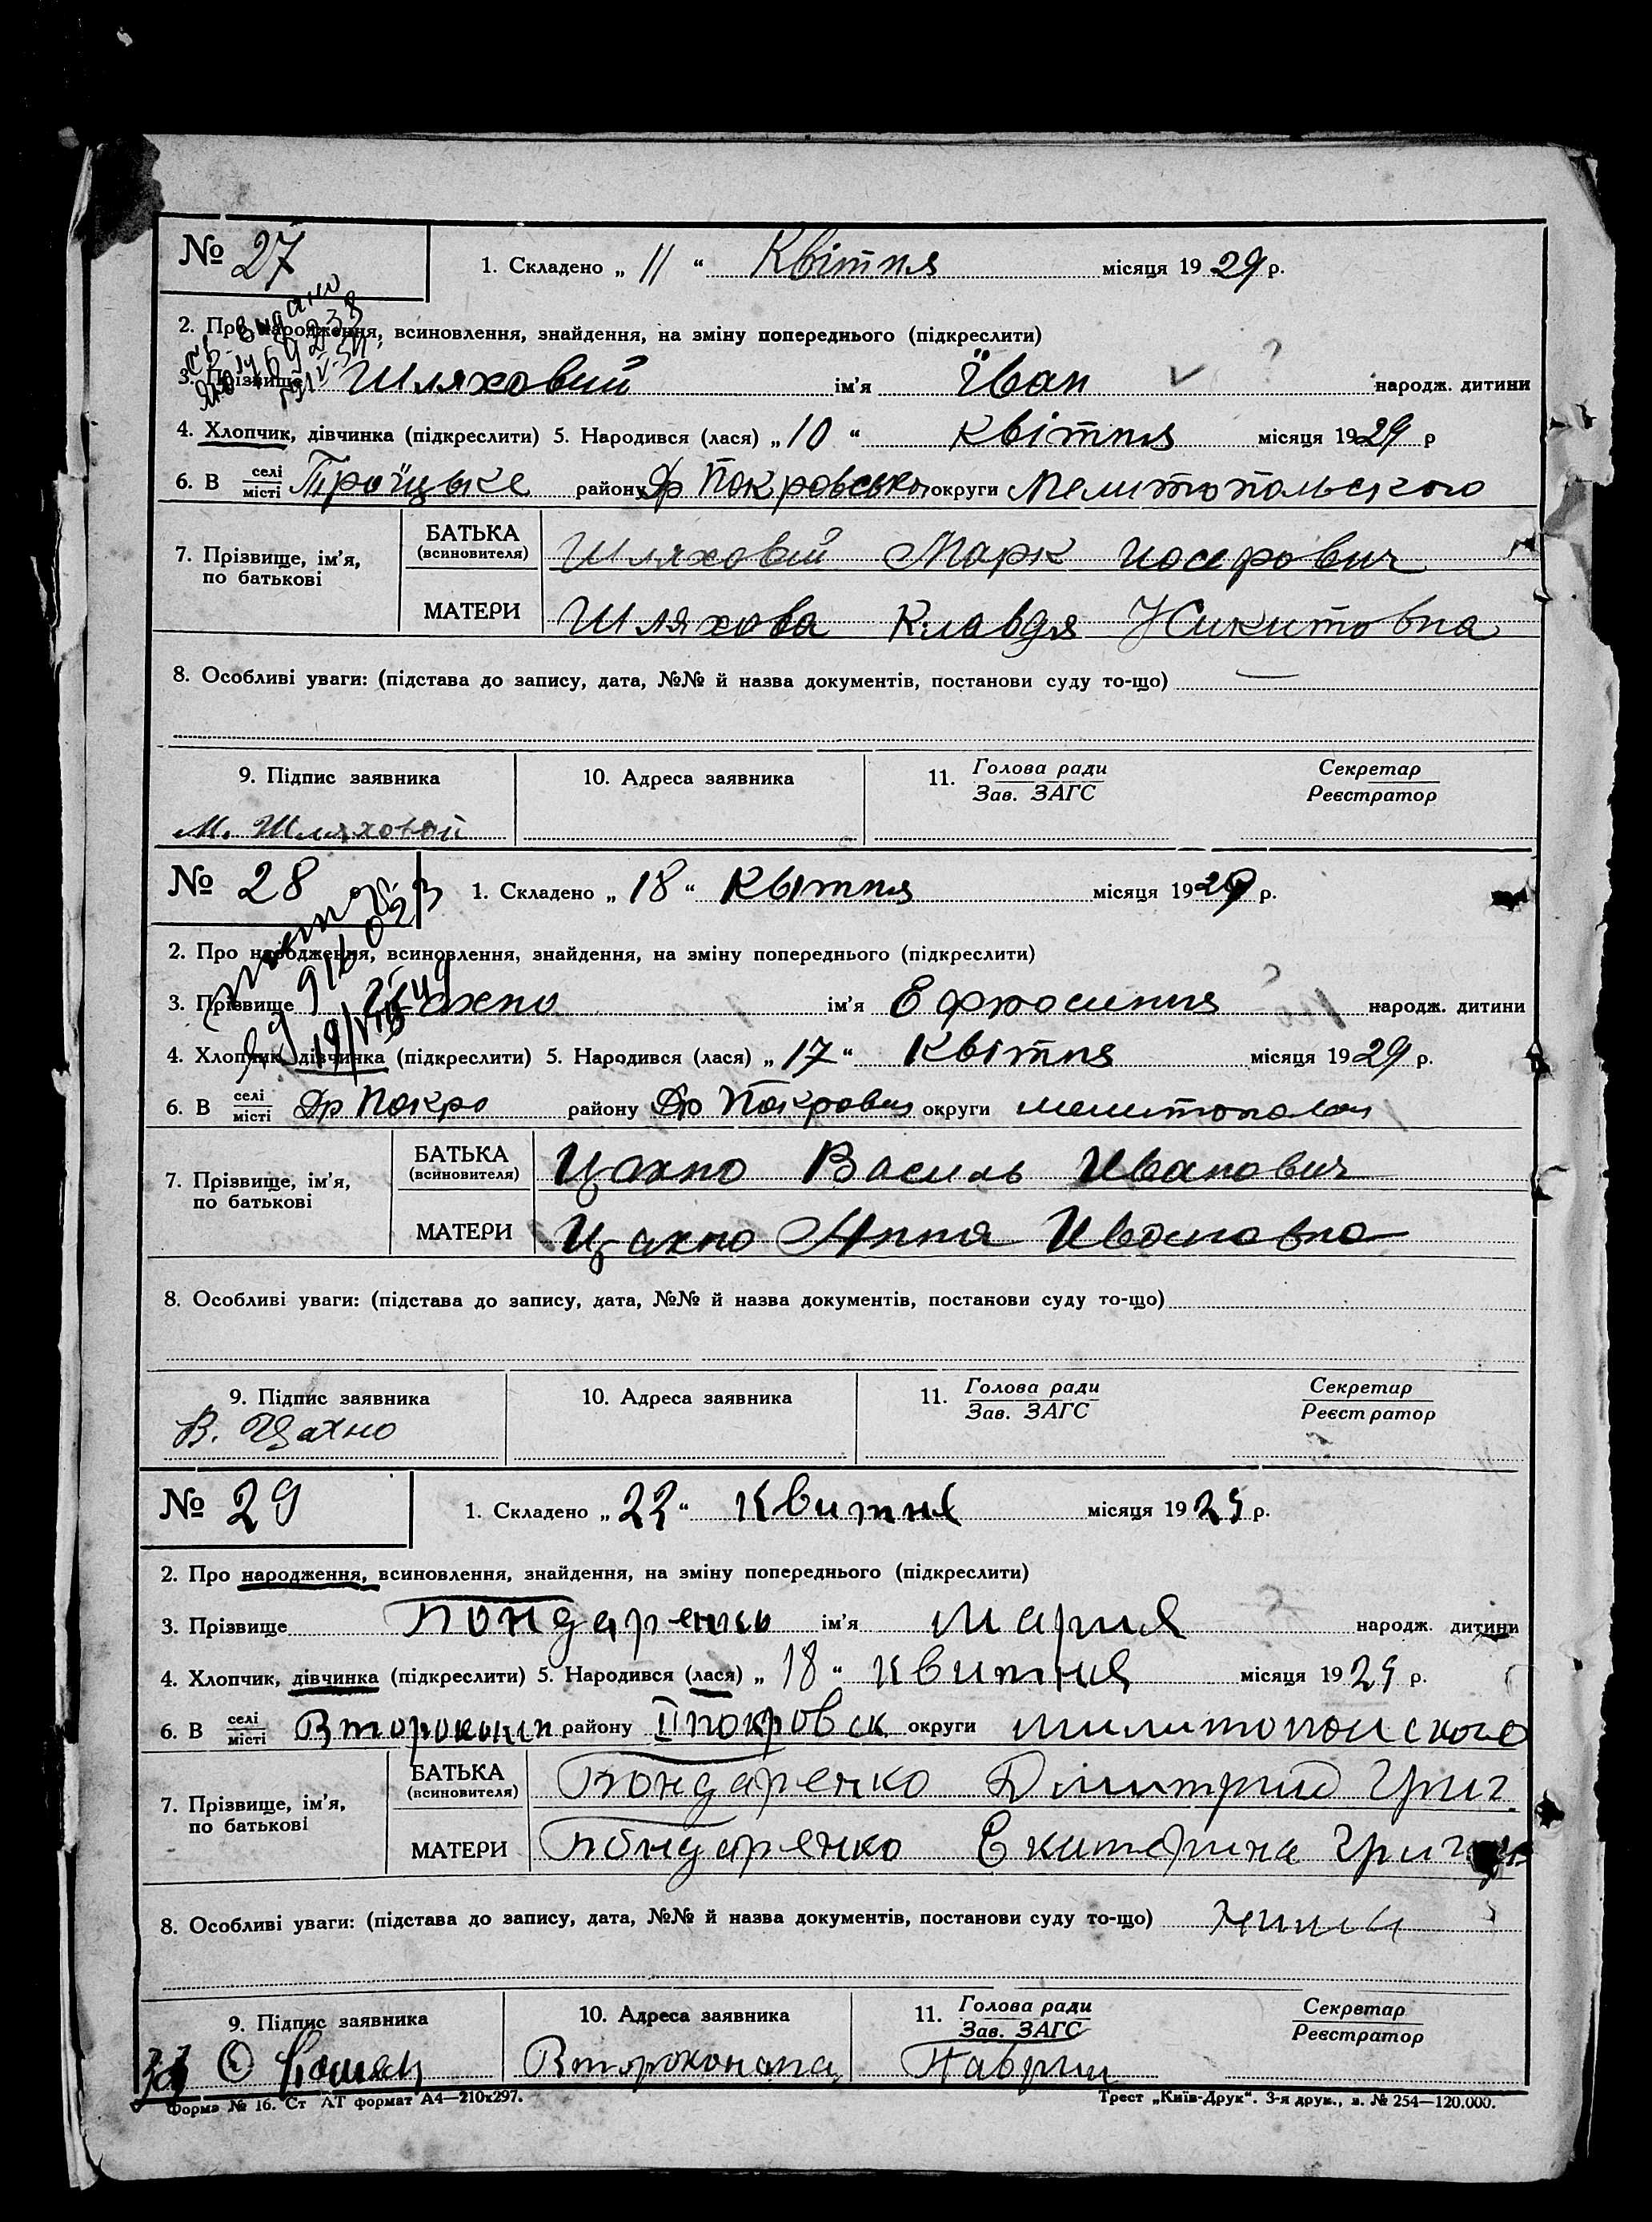 № 27
1. Складено „ 11 “ Квітня місяця 1929 р.
2. Про народження, всиновлення, знайдення, на зміну попереднього (підкреслити)
3. Прізвище Шляховий ім'я Їван народж. дитини
4. Хлопчик, дівчинка (підкреслити) 5. Народився (лася) „ 10 “ Квітня місяця 1929 р
6. В селі/місті Троїцьке району Др Покровсько округи Мелитопольского
7. Прізвище, ім'я, по батькові
БАТЬКА (всиновителя) Шляховий Марк Иосерович
МАТЕРИ Шляхова Клавдя Никитовна
8. Особливі уваги: (підстава до запису, дата, №№ й назва документів, постанови суду то-що) —
9. Підпис заявника 10. Адреса заявника 11. Голова ради/Зав. ЗАГС Секретар/Реєстратор
М. Шляховой
№ 28
1. Складено „ 18 “ Квітня місяця 1929 р.
2. Про народження, всиновлення, знайдення, на зміну попереднього (підкреслити)
3. Прізвище Цахно ім'я Ефросиния народж. дитини
4. Хлопчик, дівчинка (підкреслити) 5. Народився (лася) „ 17 “ Квітня місяця 1929 р.
6. В селі/місті Др Покро району Др Покровськ округи
7. Прізвище, ім'я, по батькові
БАТЬКА (всиновителя) Цахно Василь Иванович
МАТЕРИ Цахно Анна Ивановна
8. Особливі уваги: (підстава до запису, дата, №№ й назва документів, постанови суду то-що)
9. Підпис заявника 10. Адреса заявника 11. Голова ради/Зав. ЗАГС Секретар/Реєстратор
В. Цахно
№ 29
1. Складено „ 22 “ Квитня місяця 1929 р.
2. Про народження, всиновлення, знайдення, на зміну попереднього (підкреслити)
3. Прізвище Бондаренко ім'я Мария народж. дитини
4. Хлопчик, дівчинка (підкреслити) 5. Народився (лася) „ 18 “ Квитня місяця 1929 р.
6. В селі/місті району ІІ покровск округи
7. Прізвище, ім'я, по батькові
БАТЬКА (всиновителя) Бондаренко Дмитрий Григ.
МАТЕРИ Бондаренко Екитерина Григ
8. Особливі уваги: (підстава до запису, дата, №№ й назва документів, постанови суду то-що)
9. Підпис заявника 10. Адреса заявника 11. Голова ради/Зав. ЗАГС Секретар/Реєстратор
Второконата
Форма № 16. Ст АТ формат А4—210х297. Трест „Київ-Друк“. 3-я друк., з. № 254—120.000.